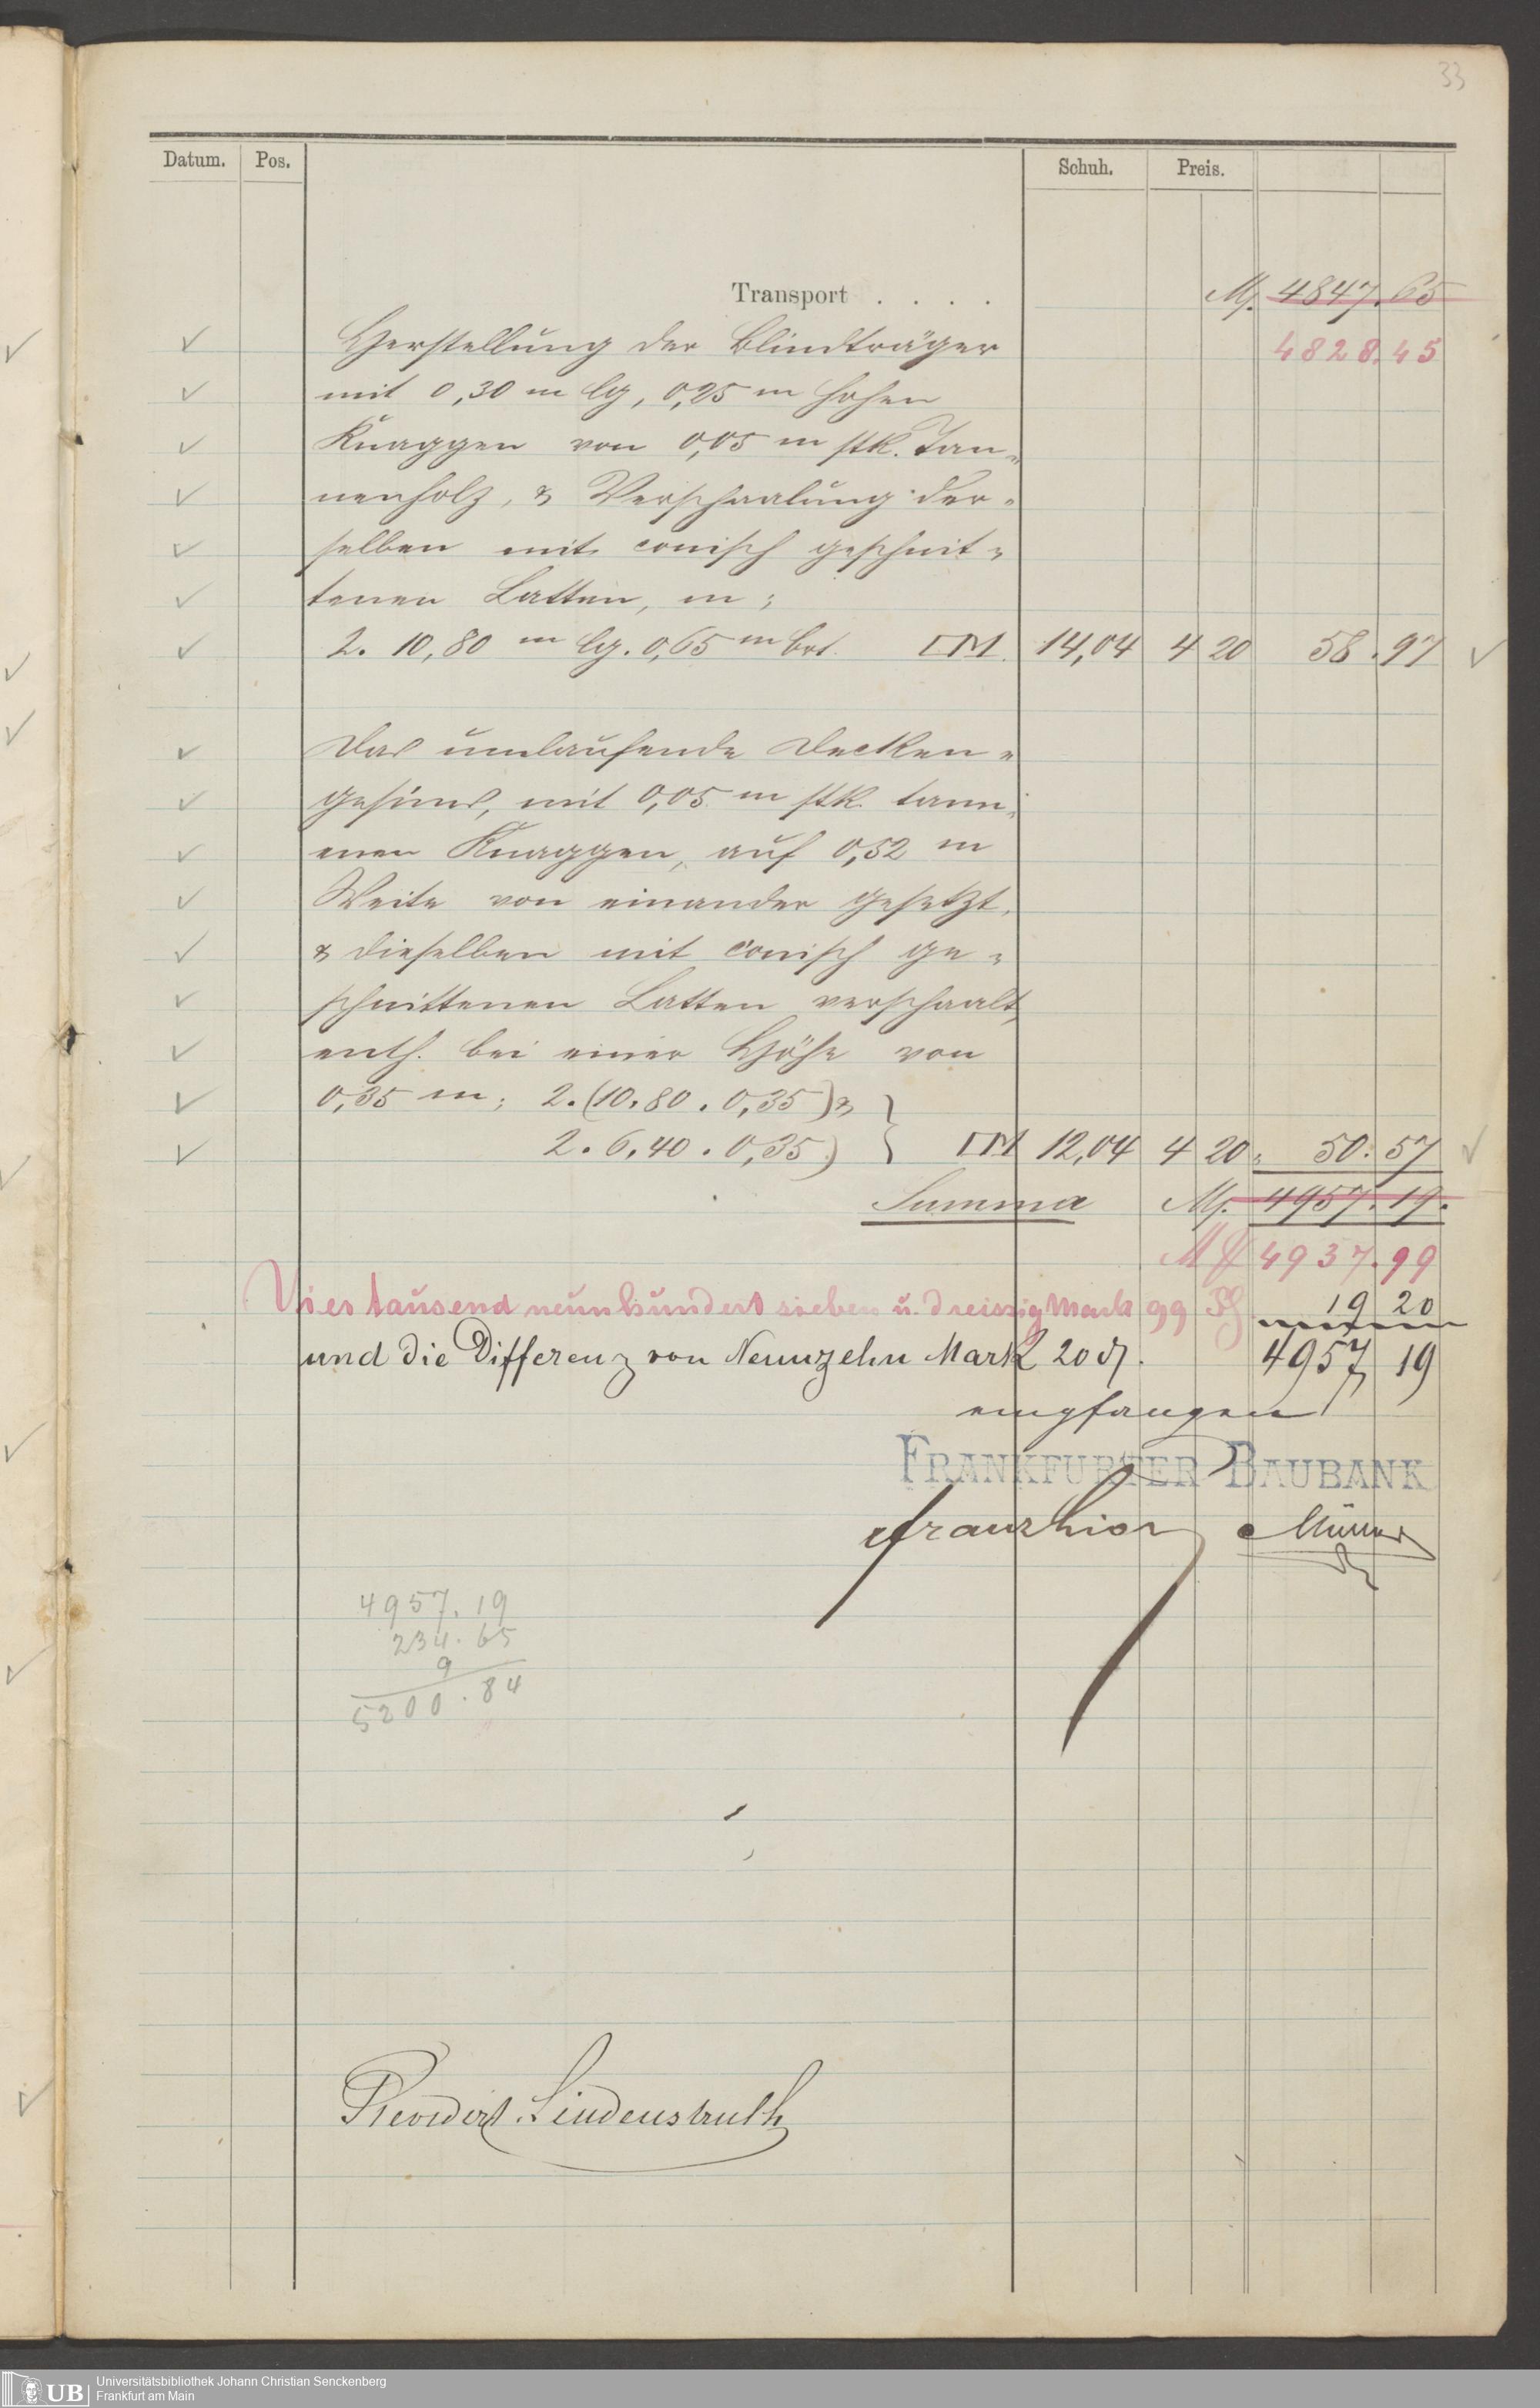 33
Datum. Pos. Schuh. Preis.
Transport . . . . M. 4847.65
4828.45
Herstellung der Blindträger
mit 0,30 m lg, 0,25 m hohen
Knaggen von 0,05 m stk. Tan-
nenholz, & Verschaalung der-
selben mit conisch geschnit-
tenen Latten, m;
2. 10,80 m lg. 0,65 m brt. □M. 14,04 4 20 58.97
Das umlaufende Decken-
gesims, mit 0,05 m stk. tann-
enen Knaggen, auf 0,52 m
Weite von einander gesetzt,
& dieselben mit conisch ge-
schnittenen Latten verschaalt,
enth. bei einer Höhe von
0,35 m; 2.(10.80 . 0,35) &
2. 6.40 . 0,35) } □M 12,04 4 20 50.57
Summa M. 4957.19.
M 4937.99
Viertausend neunhundert sieben u. dreissig Mark 99 Pf 19 20
und die Differenz von Neunzehn Mark 20 ₰. 4957 19
empfangen
FRANKFURTER BAUBANK
Müller
4957.19
234.65
9
5200.84
Theodor Lindenstruth
Universitätsbibliothek Johann Christian Senckenberg
Frankfurt am Main
UB